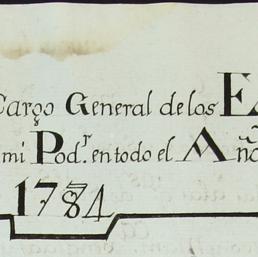 Cargo General de los
mi Pod.r en todo el Año
1784